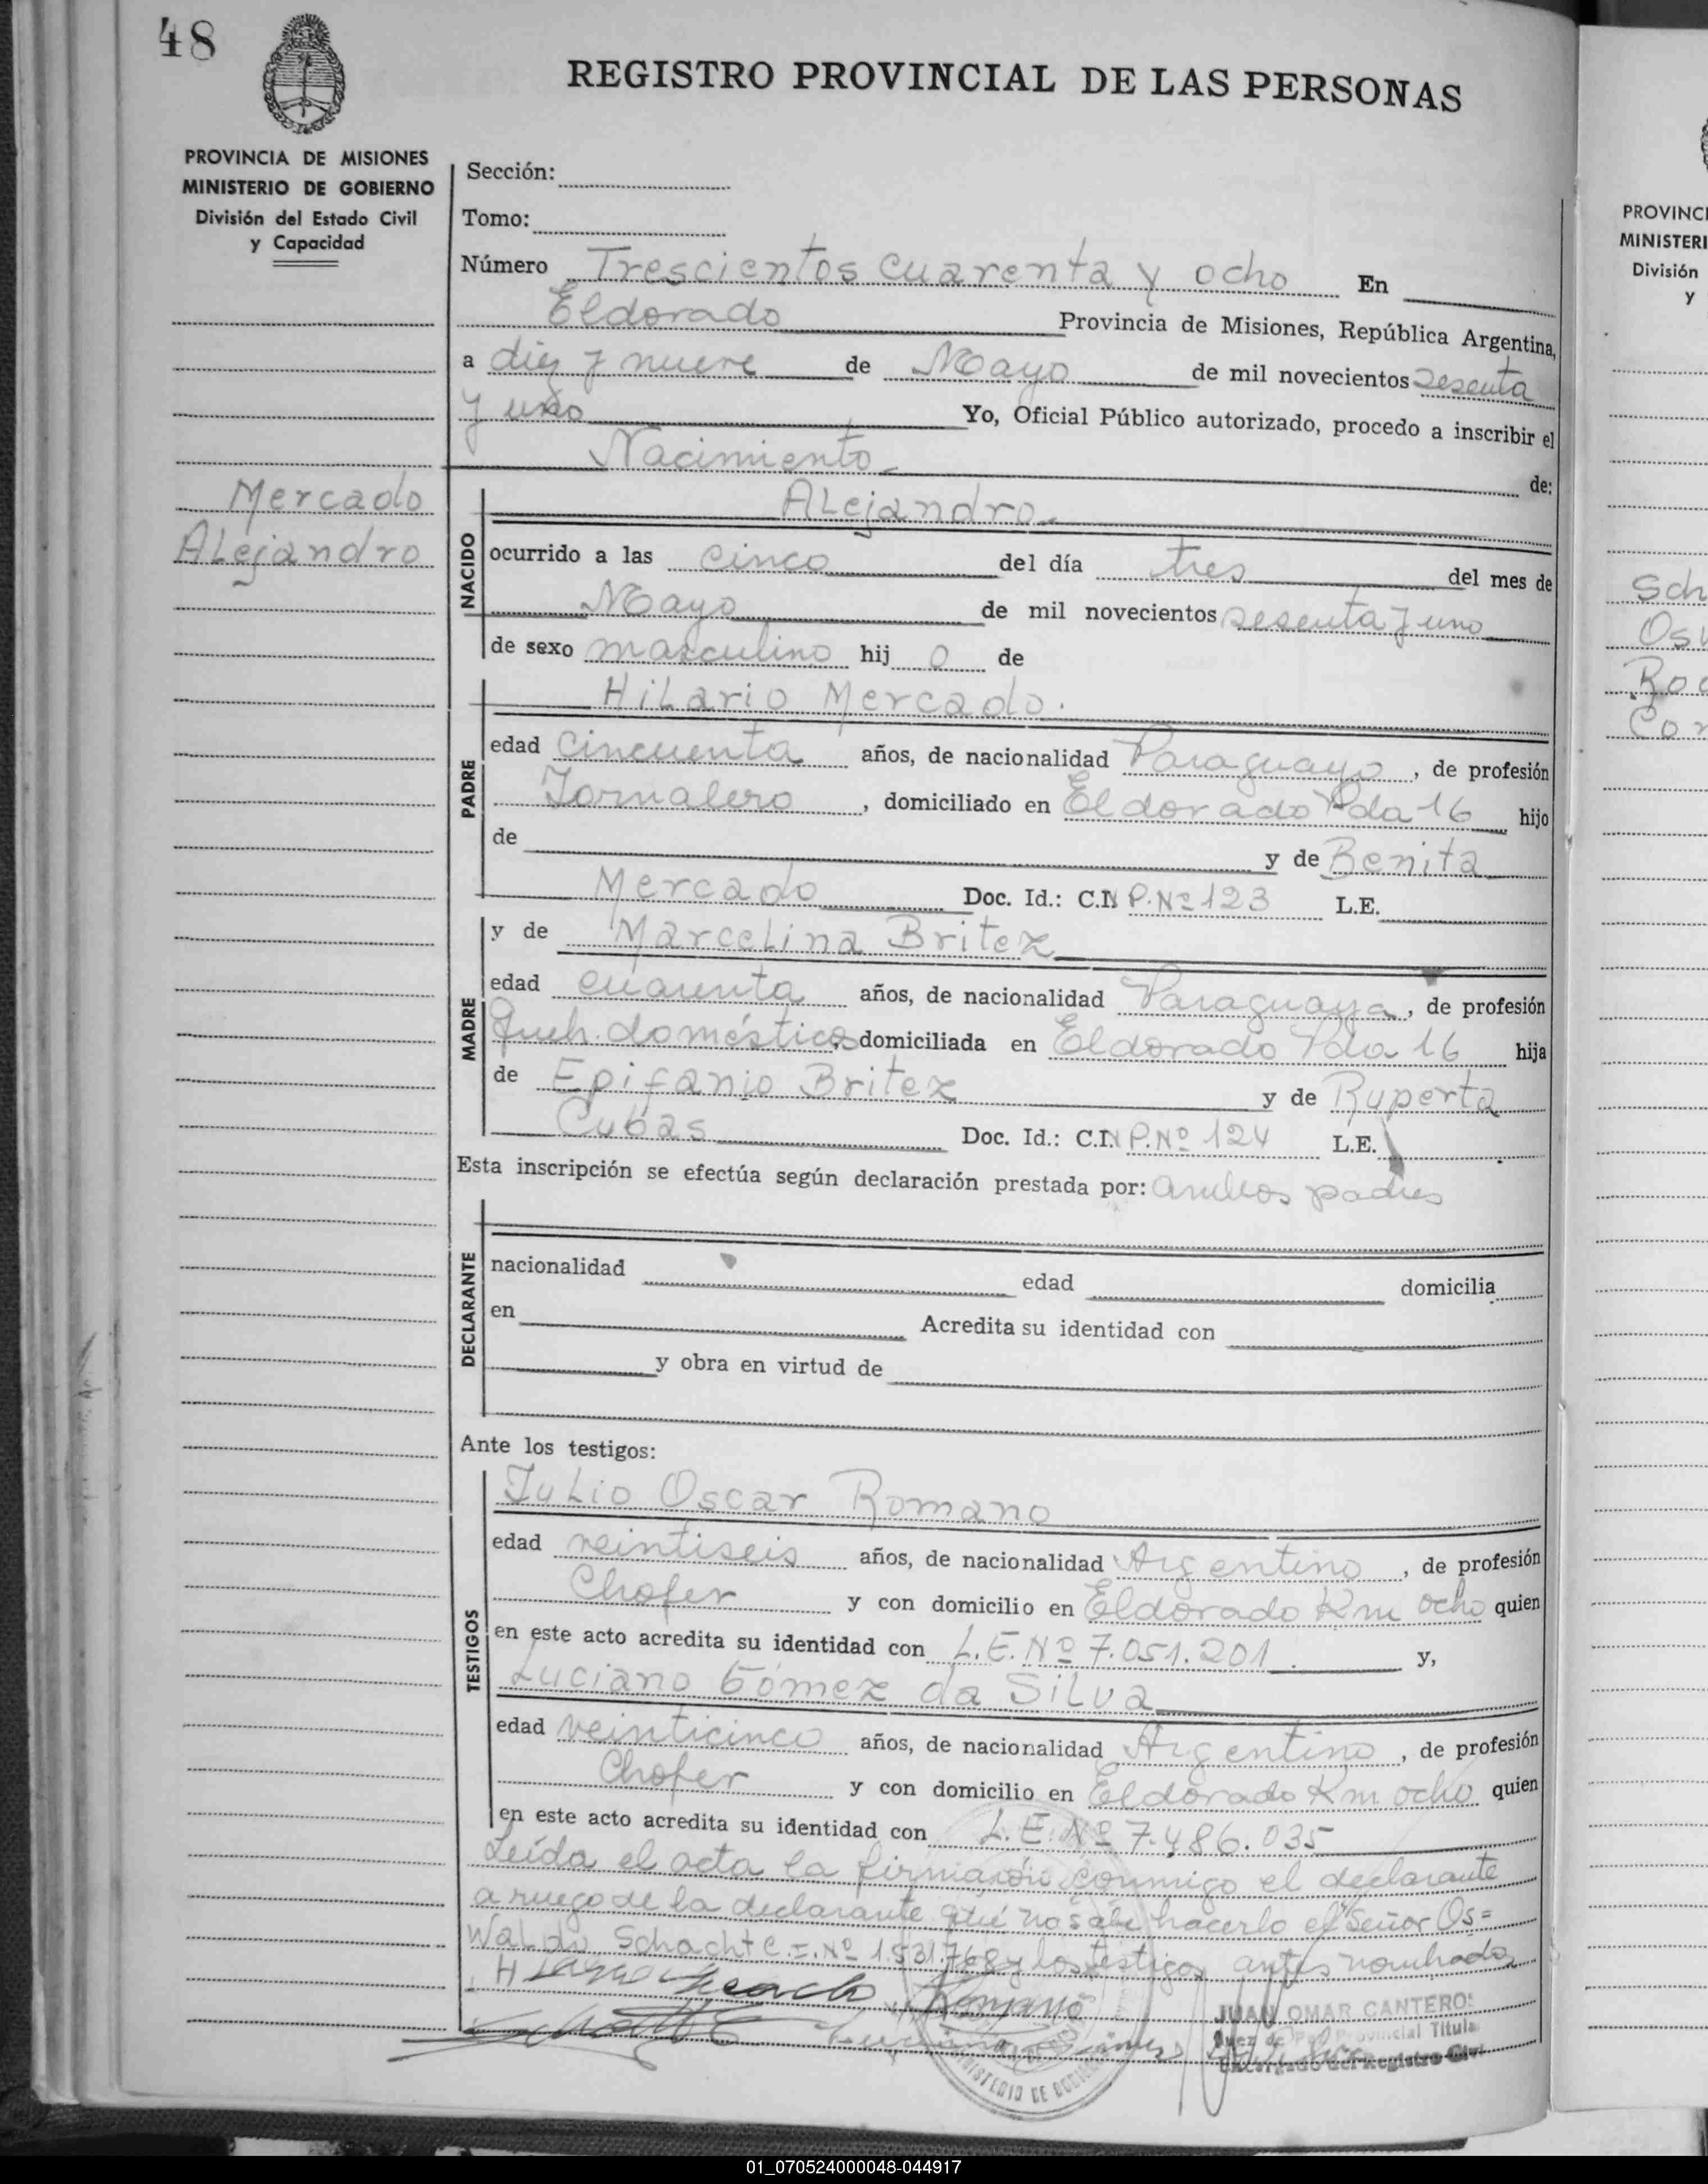 48
REGISTRO PROVINCIAL DE LAS PERSONAS
PROVINCIA DE MISIONES
MINISTERIO DE GOBIERNO
División del Estado Civil
y Capacidad
Mercado
Alejandro
Sección:
Tomo:
Número Trescientos cuarenta y ocho En
Eldorado Provincia de Misiones, República Argentina,
a diez y nueve de Mayo de mil novecientos sesenta
y uno Yo, Oficial Público autorizado, procedo a inscribir el
Nacimiento de:
NACIDO
Alejandro
ocurrido a las cinco del día tres del mes de
Mayo de mil novecientos sesenta y uno
de sexo masculino hij o de
PADRE
Hilario Mercado.
edad cincuenta años, de nacionalidad Paraguayo, de profesión
Jornalero, domiciliado en Eldorado Pda 16 hijo
de y de Benita
Mercado Doc. Id.: C.I. P.Nº 123 L.E.
MADRE
y de Marcelina Britez
edad cuarenta años, de nacionalidad Paraguaya, de profesión
Queh. domésticos domiciliada en Eldorado Pda 16 hija
de Epifanio Britez y de Ruperta
Cubas Doc. Id.: C.I. P.Nº 124 L.E.
Esta inscripción se efectúa según declaración prestada por: ambos padres
DECLARANTE
nacionalidad edad domicilia
en Acredita su identidad con
y obra en virtud de
Ante los testigos:
TESTIGOS
Julio Oscar Romano
edad veintiseis años, de nacionalidad Argentino, de profesión
Chofer y con domicilio en Eldorado Km ocho quien
en este acto acredita su identidad con L.E. Nº 7.051.201 y,
Luciano Gómez da Silva
edad veinticinco años, de nacionalidad Argentino, de profesión
Chofer y con domicilio en Eldorado Km ocho quien
en este acto acredita su identidad con L.E. Nº 7.486.035
Leída el acta la firmarón conmigo el declarante
a ruego de la declarante qué no sabe hacerlo el Señor Os=
waldo Schacht C.I. Nº 1.531.768 y los testigos antes nombrados
JUAN OMAR CANTEROS
Juez de Paz Provincial Titular
Encargado del Registro Civil
MINISTERIO DE GOBIERNO
PROVINCI
MINISTERI
División
y
Sch
Os
Ro
Co
01_070524000048-044917